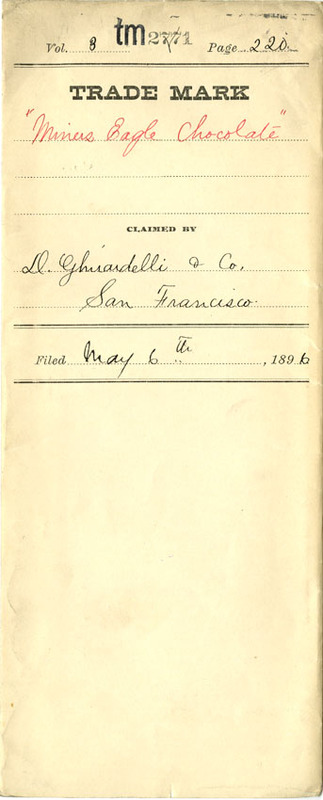 Vol. 8 tm 2771 Page 220
TRADE MARK
"Miners Eagle Chocolate"
CLAIMED BY
D. Ghirardelli & Co.
San Francisco.
Filed May 6th, 1896